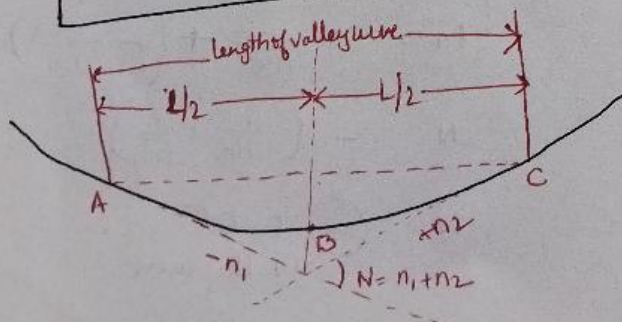 length of valley curve
L/2
L/2
A
C
B
-n1
+n2
N= n1+n2